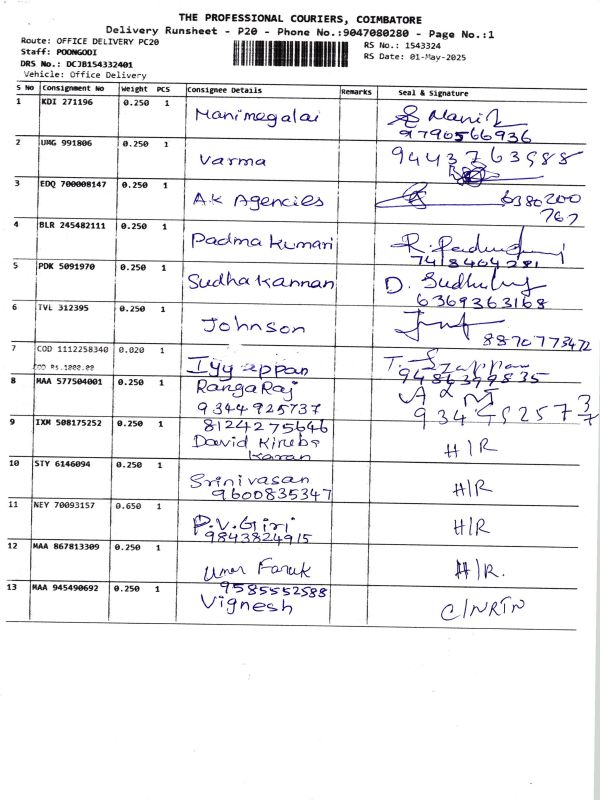 THE PROFESSIONAL COURIERS, COIMBATORE
Delivery Runsheet - P20 - Phone No.:9047080280 - Page No.:1
Route: OFFICE DELIVERY PC20
Staff: POONGODI
DRS No.: DCJB154332401
Vehicle: Office Delivery
RS No.: 1543324
RS Date: 01-May-2025
S No Consignment No Weight PCS Consignee Details Remarks Seal & Signature
1 KDI 271196 0.250 1 Manimegalai Mani
9790566936
2 UMG 991806 0.250 1 Varma 9443763988
3 EDQ 700008147 0.250 1 A.K Agencies 6380200
767
4 BLR 245482111 0.250 1 Padma Kumari
7418464281
5 PDK 5091970 0.250 1 Sudha Kannan D.
6369363168
6 TVL 312395 0.250 1 Johnson
8870773472
7 COD 1112258340 0.020 1 Iyyappan
COD Rs.1800.00 9486399835
8 MAA 577504001 0.250 1 Rangaraj
9344925737
9 IXM 508175252 0.250 1 8124275646
David Kiruba
karan H/R
10 STY 6146094 0.250 1 Srinivasan
9600835347 H/R
11 NEY 70093157 0.650 1 P.V.Giri
9843824915 H/R
12 MAA 867813309 0.250 1 Umar Faruk H/R.
13 MAA 945490692 0.250 1 9585552588
Vignesh C/NRTN